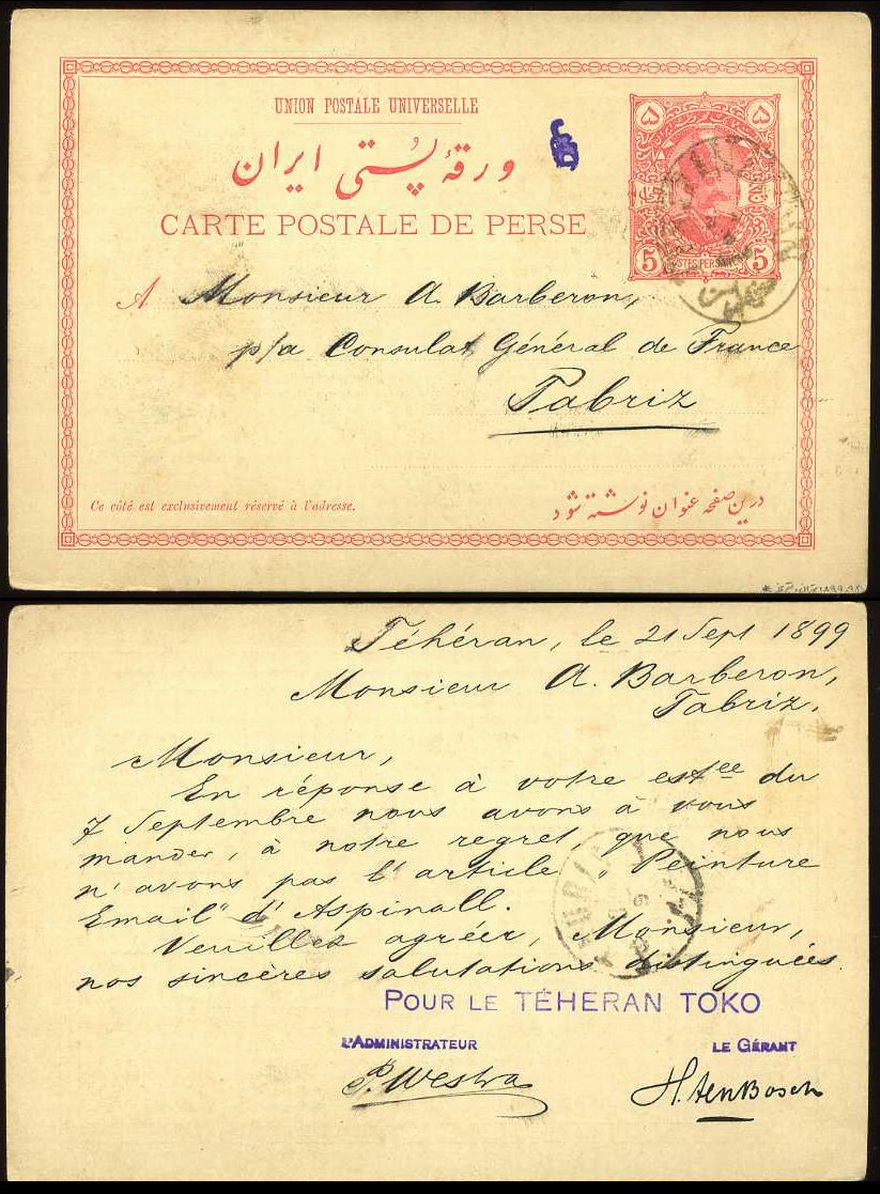 UNION POSTALE UNIVERSELLE
ورقهٔ پُستی ایران
CARTE POSTALE DE PERSE
۵ ۵
5 POSTES PERSANES 5
A Monsieur A. Barberon,
p/a Consulat Général de France
Tabriz
Ce côté est exclusivement réservé à l'adresse.
درین صفحه عنوان نوشته شود
Téhéran, le 21 Sept 1899
Monsieur A. Barberon,
Tabriz.
Monsieur,
En réponse à votre estée du
7 Septembre nous avons à vous
mander, à notre regret, que nous
n'avons pas l'article „Peinture
Email" d'Aspinall.
Veuillez agréer, Monsieur,
nos sincères salutations distinguées.
POUR LE TÉHERAN TOKO
L'ADMINISTRATEUR LE GÉRANT
P. Westra H. ten Bosch